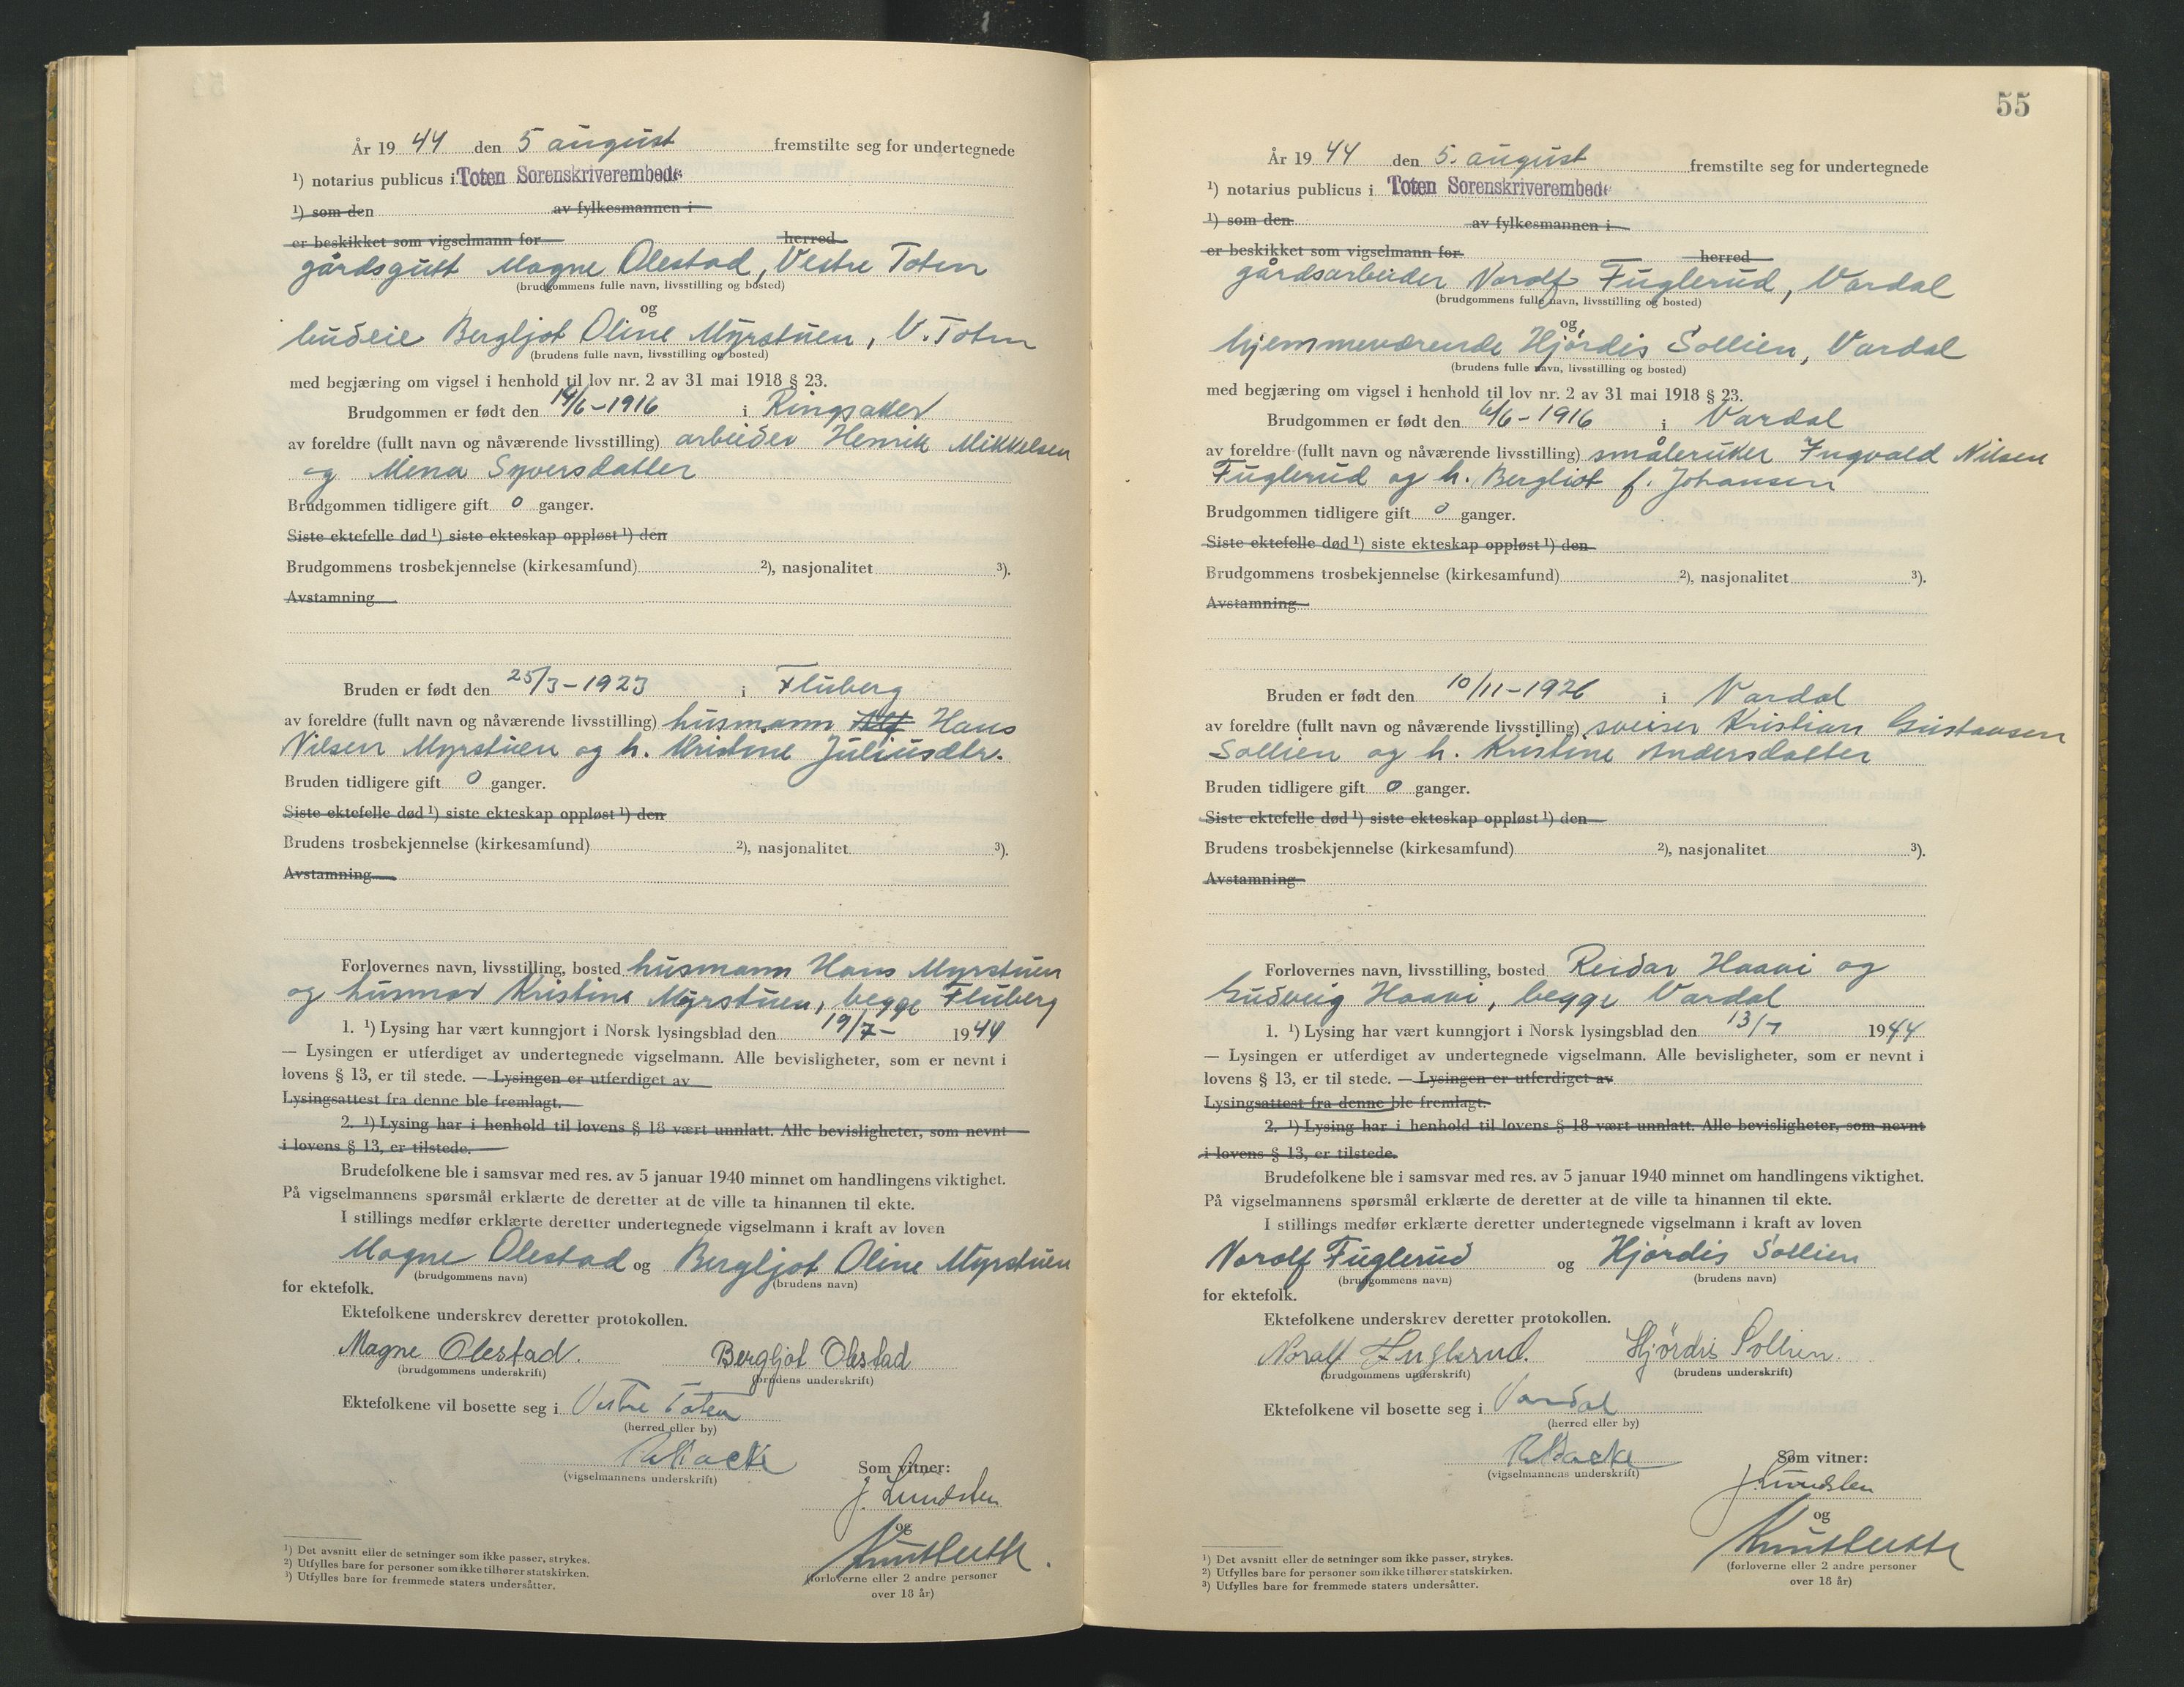 År 1944 den 5 august fremstilte seg for undertegnede
¹) notarius publicus i Toten Sorenskriverembede
¹) som den av fylkesmannen i
er beskikket som vigselmann for herred
gårdsgutt Magne Olestad, Vestre Toten
(brudgommens fulle navn, livsstilling og bosted)
og
budeie Bergljot Oline Myrstuen, V. Toten
(brudens fulle navn, livsstilling og bosted)
med begjæring om vigsel i henhold til lov nr. 2 av 31 mai 1918 § 23.
Brudgommen er født den 14/6-1916 i Ringsaker
av foreldre (fullt navn og nåværende livsstilling) arbeider Henrik Mikkelsen
og Mina Syversdatter
Brudgommen tidligere gift 0 ganger.
Siste ektefelle død ¹) siste ekteskap oppløst ¹) den
Brudgommens trosbekjennelse (kirkesamfund) ²), nasjonalitet ³).
Avstamning
Bruden er født den 25/3-1923 i Fluberg
av foreldre (fullt navn og nåværende livsstilling) husmann Hans
Nilsen Myrstuen og h. Kristine Juliusdtr.
Bruden tidligere gift 0 ganger.
Siste ektefelle død ¹) siste ekteskap oppløst ¹) den
Brudens trosbekjennelse (kirkesamfund) ²), nasjonalitet ³).
Avstamning
Forlovernes navn, livsstilling, bosted husmann Hans Myrstuen
og husmor Kristine Myrstuen, begge Fluberg
1. ¹) Lysing har vært kunngjort i Norsk lysingsblad den 19/7- 1944
— Lysingen er utferdiget av undertegnede vigselmann. Alle bevisligheter, som er nevnt i
lovens § 13, er til stede. — Lysingen er utferdiget av
Lysingsattest fra denne ble fremlagt.
2. ¹) Lysing har i henhold til lovens § 18 vært unnlatt. Alle bevisligheter, som nevnt
i lovens § 13, er tilstede.
Brudefolkene ble i samsvar med res. av 5 januar 1940 minnet om handlingens viktighet.
På vigselmannens spørsmål erklærte de deretter at de ville ta hinannen til ekte.
I stillings medfør erklærte deretter undertegnede vigselmann i kraft av loven
Magne Olestad og Bergljot Oline Myrstuen
(brudgommens navn) (brudens navn)
for ektefolk.
Ektefolkene underskrev deretter protokollen.
Magne Olestad. Bergljot Olestad
(brudgommens underskrift) (brudens underskrift)
Ektefolkene vil bosette seg i Vestre Toten
(herred eller by)
(vigselmannens underskrift) Som vitner:
J. Lundsten
og
(forloverne eller 2 andre personer
over 18 år)
¹) Det avsnitt eller de setninger som ikke passer, strykes.
²) Utfylles bare for personer som ikke tilhører statskirken.
³) Utfylles bare for fremmede staters undersåtter.
55
År 1944 den 5. august fremstilte seg for undertegnede
¹) notarius publicus i Toten Sorenskriverembede
¹) som den av fylkesmannen i
er beskikket som vigselmann for herred
gårdsarbeider Norolf Fuglerud, Vardal
(brudgommens fulle navn, livsstilling og bosted)
og
hjemmeværende Hjørdis Sollien, Vardal
(brudens fulle navn, livsstilling og bosted)
med begjæring om vigsel i henhold til lov nr. 2 av 31 mai 1918 § 23.
Brudgommen er født den 6/6-1916 i Vardal
av foreldre (fullt navn og nåværende livsstilling) småbruker Ingvald Nilsen
Fuglerud og h. Bergliot f. Johansen
Brudgommen tidligere gift 0 ganger.
Siste ektefelle død ¹) siste ekteskap oppløst ¹) den
Brudgommens trosbekjennelse (kirkesamfund) ²), nasjonalitet ³).
Avstamning
Bruden er født den 10/11-1926 i Vardal
av foreldre (fullt navn og nåværende livsstilling) sveiser Kristian Gustavsen
Sollien og h. Kristine Andersdatter
Bruden tidligere gift 0 ganger.
Siste ektefelle død ¹) siste ekteskap oppløst ¹) den
Brudens trosbekjennelse (kirkesamfund) ²), nasjonalitet ³).
Avstamning
Forlovernes navn, livsstilling, bosted Reidar Haavi og
Gudveig Haavi, begge Vardal
1. ¹) Lysing har vært kunngjort i Norsk lysingsblad den 13/7 1944
— Lysingen er utferdiget av undertegnede vigselmann. Alle bevisligheter, som er nevnt i
lovens § 13, er til stede. — Lysingen er utferdiget av
Lysingsattest fra denne ble fremlagt.
2. ¹) Lysing har i henhold til lovens § 18 vært unnlatt. Alle bevisligheter, som nevnt
i lovens § 13, er tilstede.
Brudefolkene ble i samsvar med res. av 5 januar 1940 minnet om handlingens viktighet.
På vigselmannens spørsmål erklærte de deretter at de ville ta hinannen til ekte.
I stillings medfør erklærte deretter undertegnede vigselmann i kraft av loven
Norolf Fuglerud og Hjørdis Sollien
(brudgommens navn) (brudens navn)
for ektefolk.
Ektefolkene underskrev deretter protokollen.
Noralf Fuglerud. Hjørdis Sollien.
(brudgommens underskrift) (brudens underskrift)
Ektefolkene vil bosette seg i Vardal
(herred eller by)
(vigselmannens underskrift) Som vitner:
J. Lundsten
og
(forloverne eller 2 andre personer
over 18 år)
¹) Det avsnitt eller de setninger som ikke passer, strykes.
²) Utfylles bare for personer som ikke tilhører statskirken.
³) Utfylles bare for fremmede staters undersåtter.